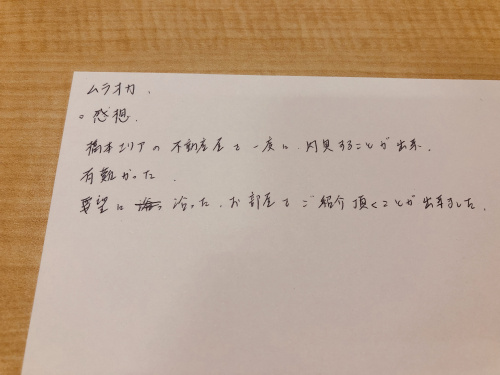 ムラオカ.
○感想.
橋本エリアの不動産屋を一度に、内見することが出来、
有難かった.
要望に 沿った、お部屋をご紹介頂くことが出来ました.